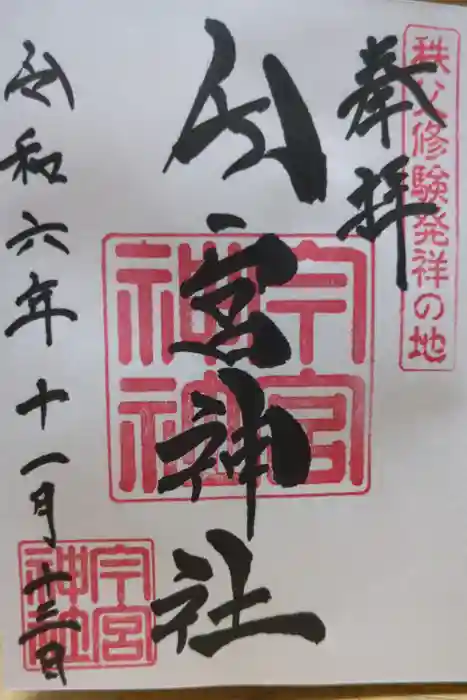 秩父修験発祥の地
奉拝
今宮神社
今宮
神社
令和六年十一月十三日
今宮
神社